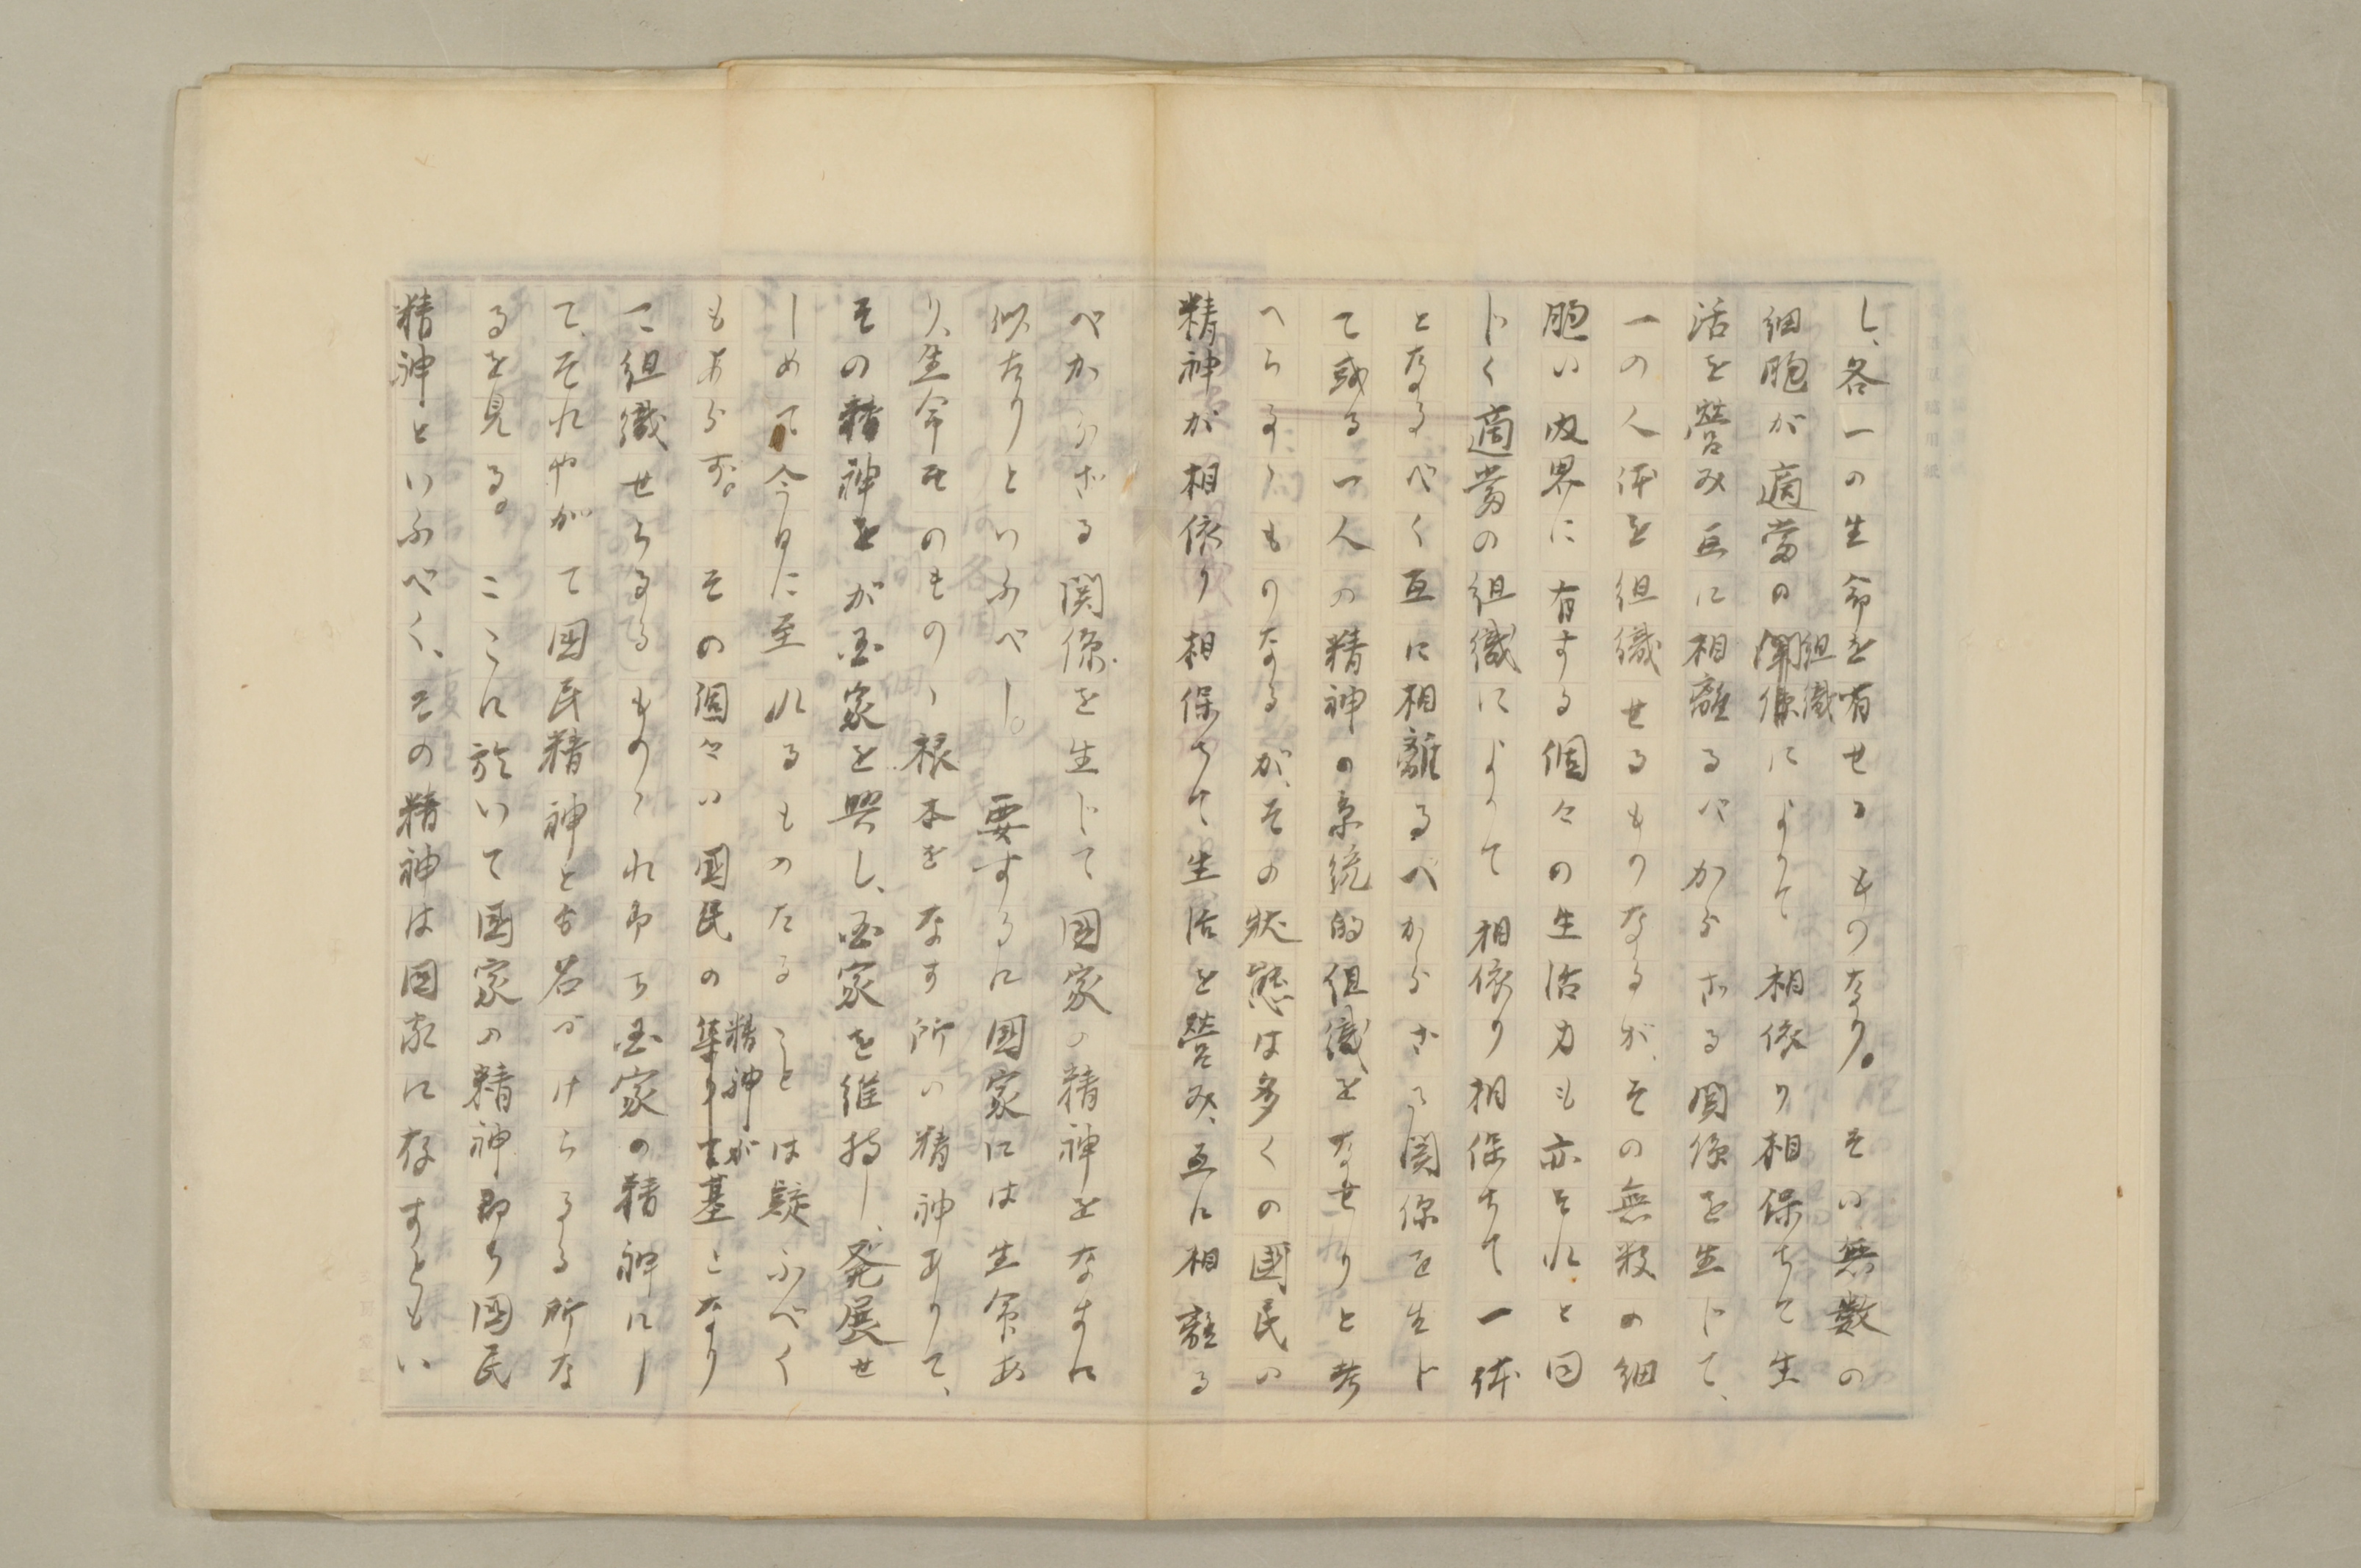 し、各一の生命を有せるものなり。その無数の
細胞が適當の組織によりて相依り相保ちて生
活を營み互に相離るべからざる関係を生じて、
一の人体を組織せるものなるが、その無数の細
胞の内界に有する個々の生活力も亦それと同
じく適當の組織によりて相依り相保ちて一体
となるべく互に相離るべからざる関係を生じ
て或る一人の精神の系統的組織をなせりと考
へらるゝものなるが、その状態は多くの國民の
精神が相依り相保ちて生活を營み、互に相離る
べからざる関係を生じて國家の精神をなすに
似たりといふべし。要するに國家には生命あ
り、生命そのものゝ根本をなす所の精神ありて、
その精神をが国家を興し、国家を維持し、発展せ
しめて今日に至れるものたることは疑ふべく
もあらず。その個々の國民の精神が基となり
て組織せらるるものこれ即ち国家の精神にし
て、それやがて國民精神と名づけらるる所な
るを見る。ここに於いて國家の精神即ち國民
精神といふべく、その精神は国家に存すともい